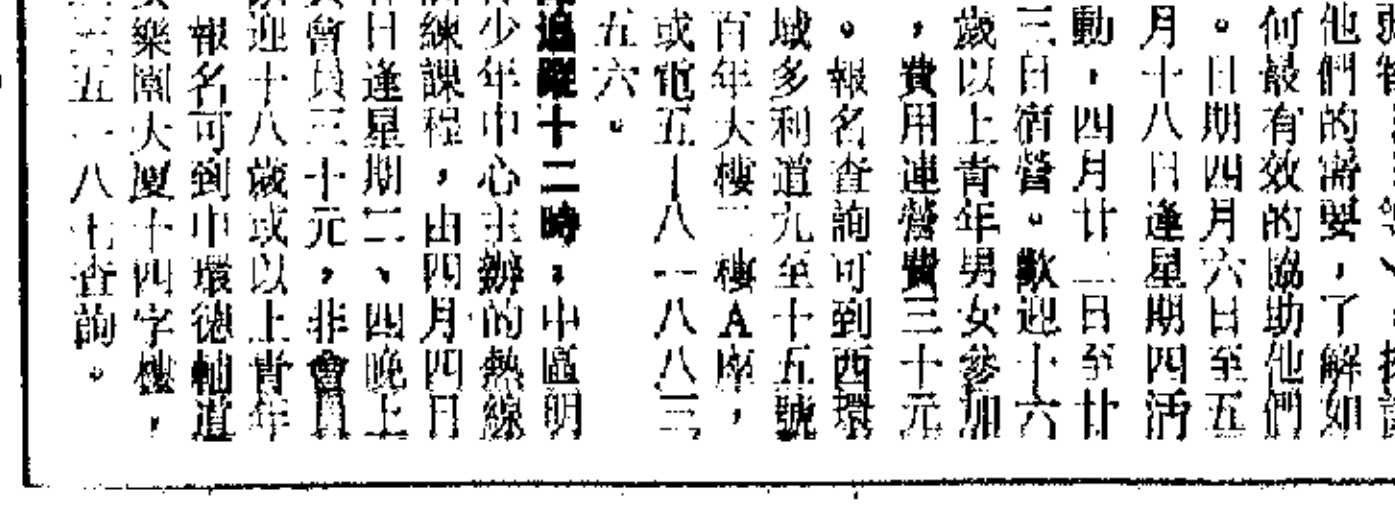 他們的需要，了解如
何最有效的協助他們
。日期四月六日至五
月十八日逢星期四活
動，四月廿二日至廿
三日宿營。歡迎十六
歲以上青年男女參加
，費用連營費三十元
。報名查詢可到西環
域多利道九至十五號
百年大樓二樓A座，
或電五—八一八八三
五六。
追蹤十二時，中區明
少年中心主辦的熱線
練課程，由四月四日
日逢星期二、四晚上
會員三十元，非會員
迎十八歲或以上青年
報名可到中環德輔道
樂園大廈十四字樓，
三五一八七查詢。